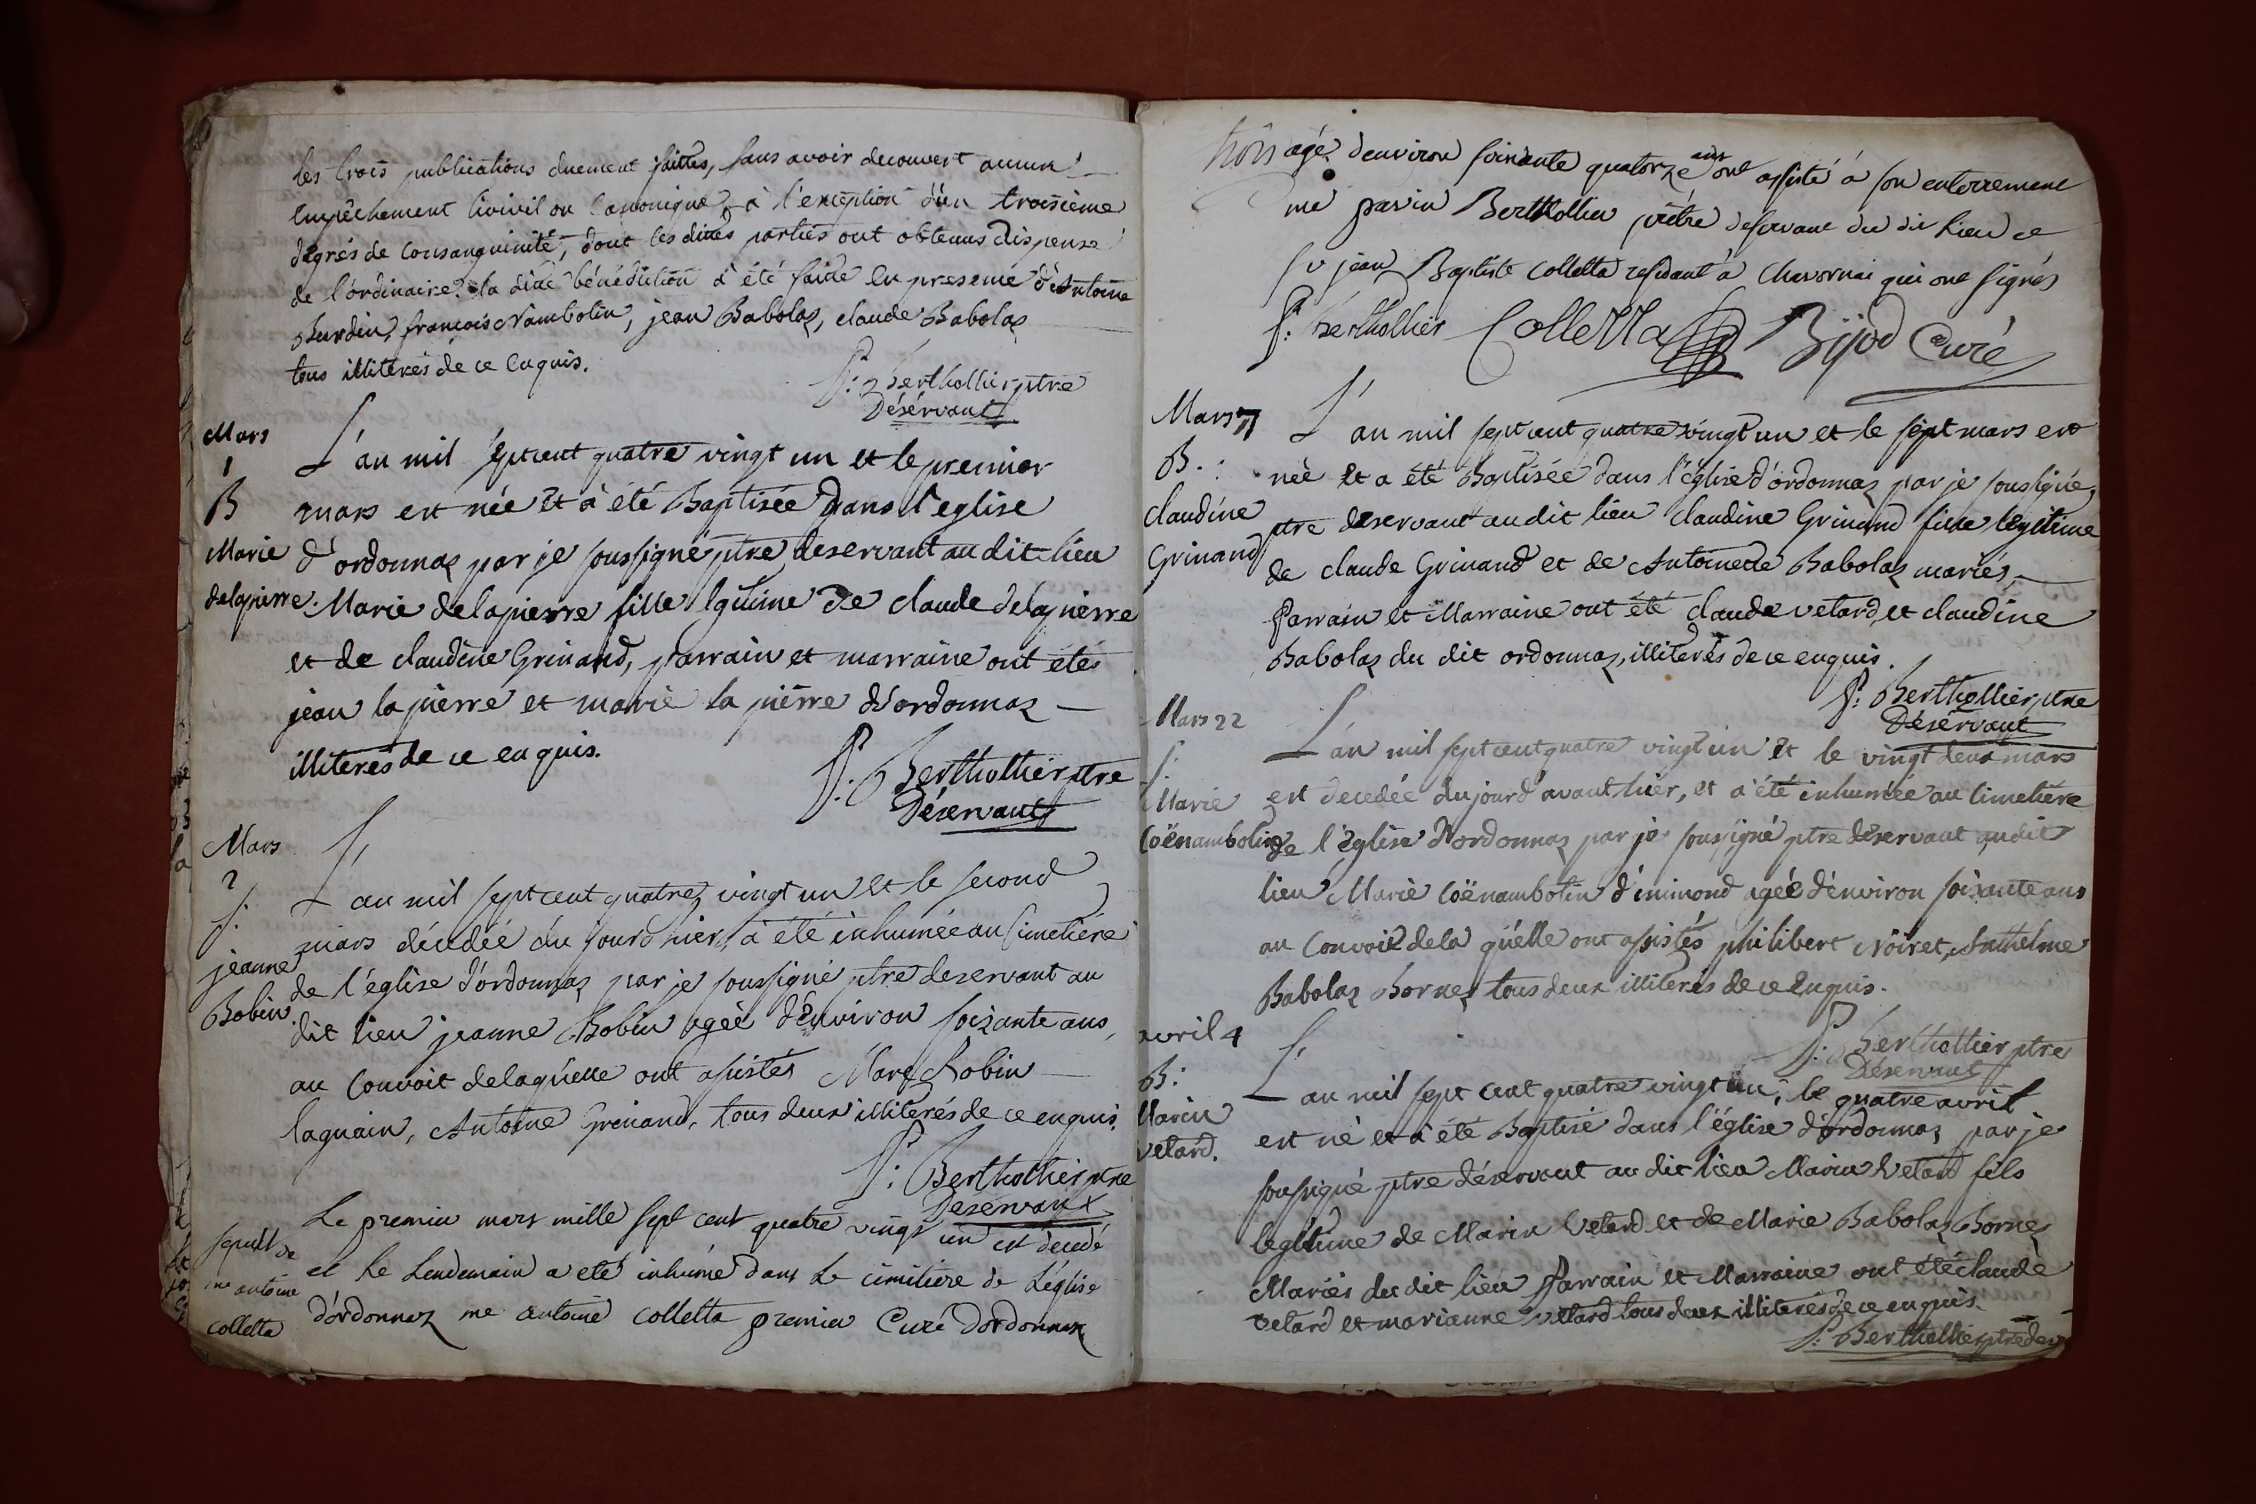 les trois publications duement faittes, sans avoir decouvert aucun
empêchement livivil ou canonique, à l'exception d'un troisième
dégrés de consanguinité, dont les dittes parties ont obtenus dispense
de l'ordinaire. la dite bénédiction à été faite en presence d'Antoine
Burdin, françois Nambotin, jean Babolaz, claude Babolaz
tous illiterés de ce enquis.
P: Berthollier ptre
Désérvant
Mars
1
B
Marie
delapierre.
L'an mil sept cent quatre vingt un et le premier
mars est née et à été Baptisée dans l'eglise
d'ordonnaz par je soussigné ptre deservant au dit lieu
Marie delapierre fille lgitime de claude delapierre
et de claudine Grinand, parrain et marraine ont étés
jean lapierre et marie la pierre d'ordonnaz
illiterés de ce enquis.
P: Berthollier ptre
Déservant
Mars
2
S:
jeanne
Bobin
L'an mil sept cent quatre vingt un et le second
mars décédée du jourd hier, à été inhumée au Cimetiére
de l'église d'ordonnaz par je soussigné ptre deservant au
dit lieu jeanne Bobin agée d'énviron soixante ans,
au Convoit delaquelle ont asistés Marq Robin
laguain, Antoine Grinand, tous deux illiterés de ce enquis.
P: Berthollier ptre
Déservant
sepult de
me antoine
colletta
Le premier mars mille sept cent quatre vingt un est decedé
et le Lendemain a eté inhumé dans Le cimitiere de L'église
d'ordonnaz me antoine colletta premier Curé Dordonnaz
agé denviron soixante quatorze ans ont assisté à son enterrement
me Berthollier prêtre deservant du dit Lieu et
sr jean Baptiste colletta residant à Chavornai qui ont signés
P: Berthollier Colletta Bijod Curé
Mars 7
B.:
claudine
Grinand
L'an mil sept cent quatre vingt un et le sept mars est
née et a été Baptisée dans l'église d'ordonnaz par je soussigné
ptre deservant au dit lieu claudine Grinand fille legitime
de claude Grinand et de Antoinette Babolaz mariés,
Parrain et Marraine ont été claude vetard, et claudine
Babolaz du dit ordonnaz, illiterés de ce enquis.
P: Berthollier ptre
Désérvant
Mars 22
S:
Marie
Coënambotin
L'an mil sept cent quatre vingt un et le vingt deux mars
est decedée du jourd'avant hier, et a été inhumée au cimetière
de l'église d'ordonnaz par je soussigné ptre déservant au dit
lieu Marie Coënambotin d'inimond agée d'énviron soixante ans
au Convoit de la quelle ont asistés philibert Noiret, Anthelme
Babolaz Bornez tous deux illiterés de ce enquis.
P: Berthollier ptre
Déservant
avril 4
B:
Marin
vetard.
L'an mil sept cent quatre vingt un, le quatre avril
est né et à été Baptisé dans l'église d'ordonnaz par je
soussigné ptre déservant au dit lieu Marin Vetard fils
legitime de Marin Vetard et de Marie Babolaz Bornez
Mariés du dit lieu Parrain et Marraine ont été claude
vetard et marianne vetard tous deux illiterés de ce enquis.
P: Berthollier ptre des